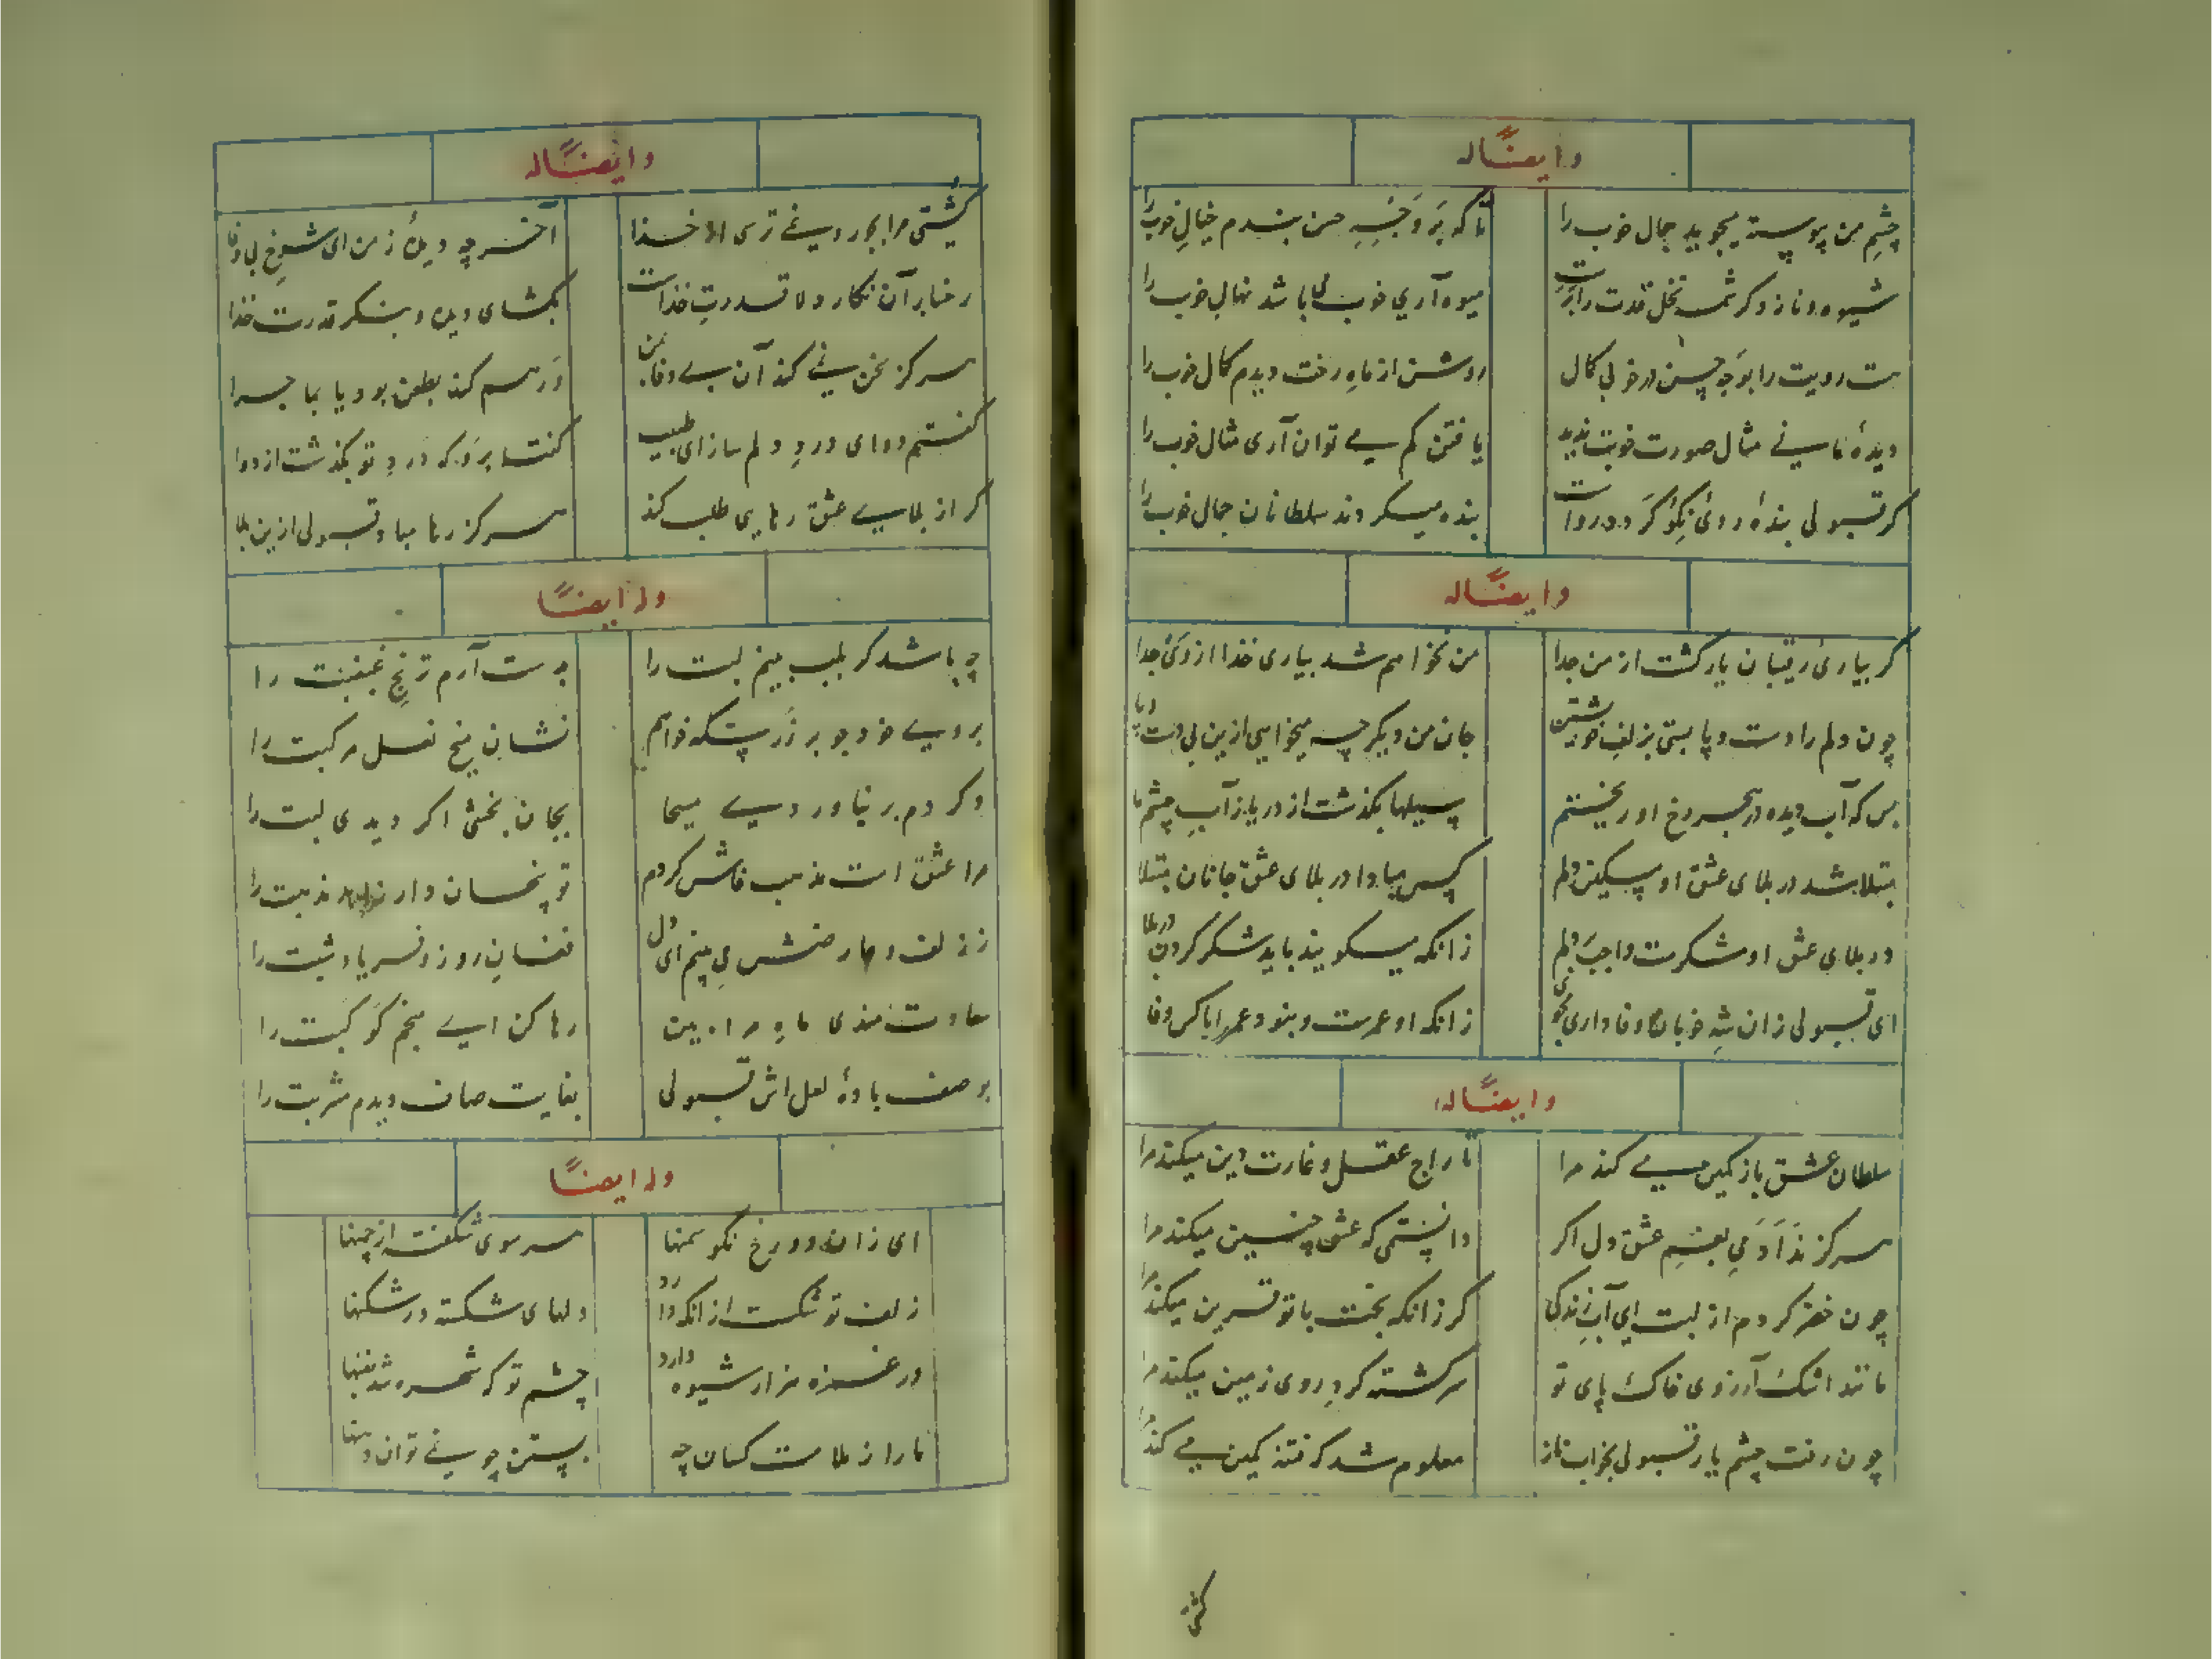 وایضًا له
چشمِ من پیوسته میجوید جمال خوب را
تا که بَر وَجْهِ حسن بندم خیالِ خوب را
شیوه و ناز و کرشمه نخل قدت را برست
میوه آری خوب می باشد نهالِ خوب را
هست رویت را بوَجهِ حسن در خوبی کمال
روشن از ماهِ رخت دیدم کمال خوب را
دیدهٔ ما نی مثال صورت خوبت ندید
یافتن کم می توان آری مثال خوب را
کر قبولی بندهٔ روئ نِکُو کَردد رواست
بنده میکردند سلطانان جمال خوب را
وایضًا له
کر بیارئ رقیبان یار کشت از من جدا
من نخواهم شد بیاری خدا از وَئ جدا
چون دلم را دست و پا بستی بزلفِ خویشتن
جان من دیکر چه میخواهی ازین بی دست و پا
بس که آب دیده در هجر رخ او ریختم
سیلها بکذشت از دریا ز آبِ چشم ما
مبتلا شد در بلای عشق او مسکین دلم
کس مبادا در بلای عشق جانان مبتلا
در بلای عشق او شکرست واجب بر دلم
زانکه میکویند باید شکر کردن در بلا
ای قبولی زان شهِ خوبان وفاداری مجوی
زانکه او عمرست و نبود عمر را با کس وفا
وایضًا له
سلطان عشق باز کمین می کند مرا
تاراج عقل و غارت دین میکند مرا
هرکز ندَادَمی بغمِ عشق دل اکر
دانستمی که عشق چنین میکند مرا
چون خضر کردم از لبت ای آبِ زندکی
کر زانکه بخت با تو قرین میکند مرا
مانند اشک آرزوی خاک پای تو
سرکشته کردِ روی زمین میکند مرا
چون رفت چشم یار قبولی بخواب ناز
معلوم شد که فتنه کمین می کند مرا
کشتی
وایضًا له
کُشتی مرا بجور و نمی ترسی از خدا
آخر چه دیدهٔ ز من ای شوخِ بی وفا
رخسار آن نکار دلا قدرتِ خداست
بکشای دیده و بنکر قدرت خدا
هرکز سخن نمی کند آن بی وفا بمن
وَر هم کند بطعن بود یا بماجرا
کفتم دوای دردِ دلم ساز ای طبیب
کفتا بَروَ که دردِ تو بکذشت از دوا
کر از بلای عشق رهایی طلب کند
هرکز رها مبادْ قبولی ازین بلا
وله ایضًا
چه باشد کر بلب بینم لبت را
بدست آرم ترنجِ غبغبت را
بروی خود چو بر زَر سکه خواهم
نشان میخ نعل مرکبت را
دکر دم بر نیاوردی مسیحا
بجان بخشی اکر دیدی لبت را
مرا عشق است مذهب فاش کردم
تو پنهان دار زاهد مذهبت را
ز زلف و عارضش می بینم ای دل
فغانِ روز و فریاد شبت را
سعادتمندی ماهِ مرا بین
رها کن ای منجم کَوکَبت را
بوصف بادهٔ لعل اش قبولی
بغایت صاف دیدم مشربت را
وله ایضًا
ای زان دو رخ نکو سمنها
هر سوی شکفته از چمنها
زلف تو شکست از آنکه دارد
دلهای شکسته در شکنها
در غمزه هزار شیوه دارد
چشم تو که شهره شد بفنها
ما را ز ملامت کسان چه
بستن چو نمی توان دهنها